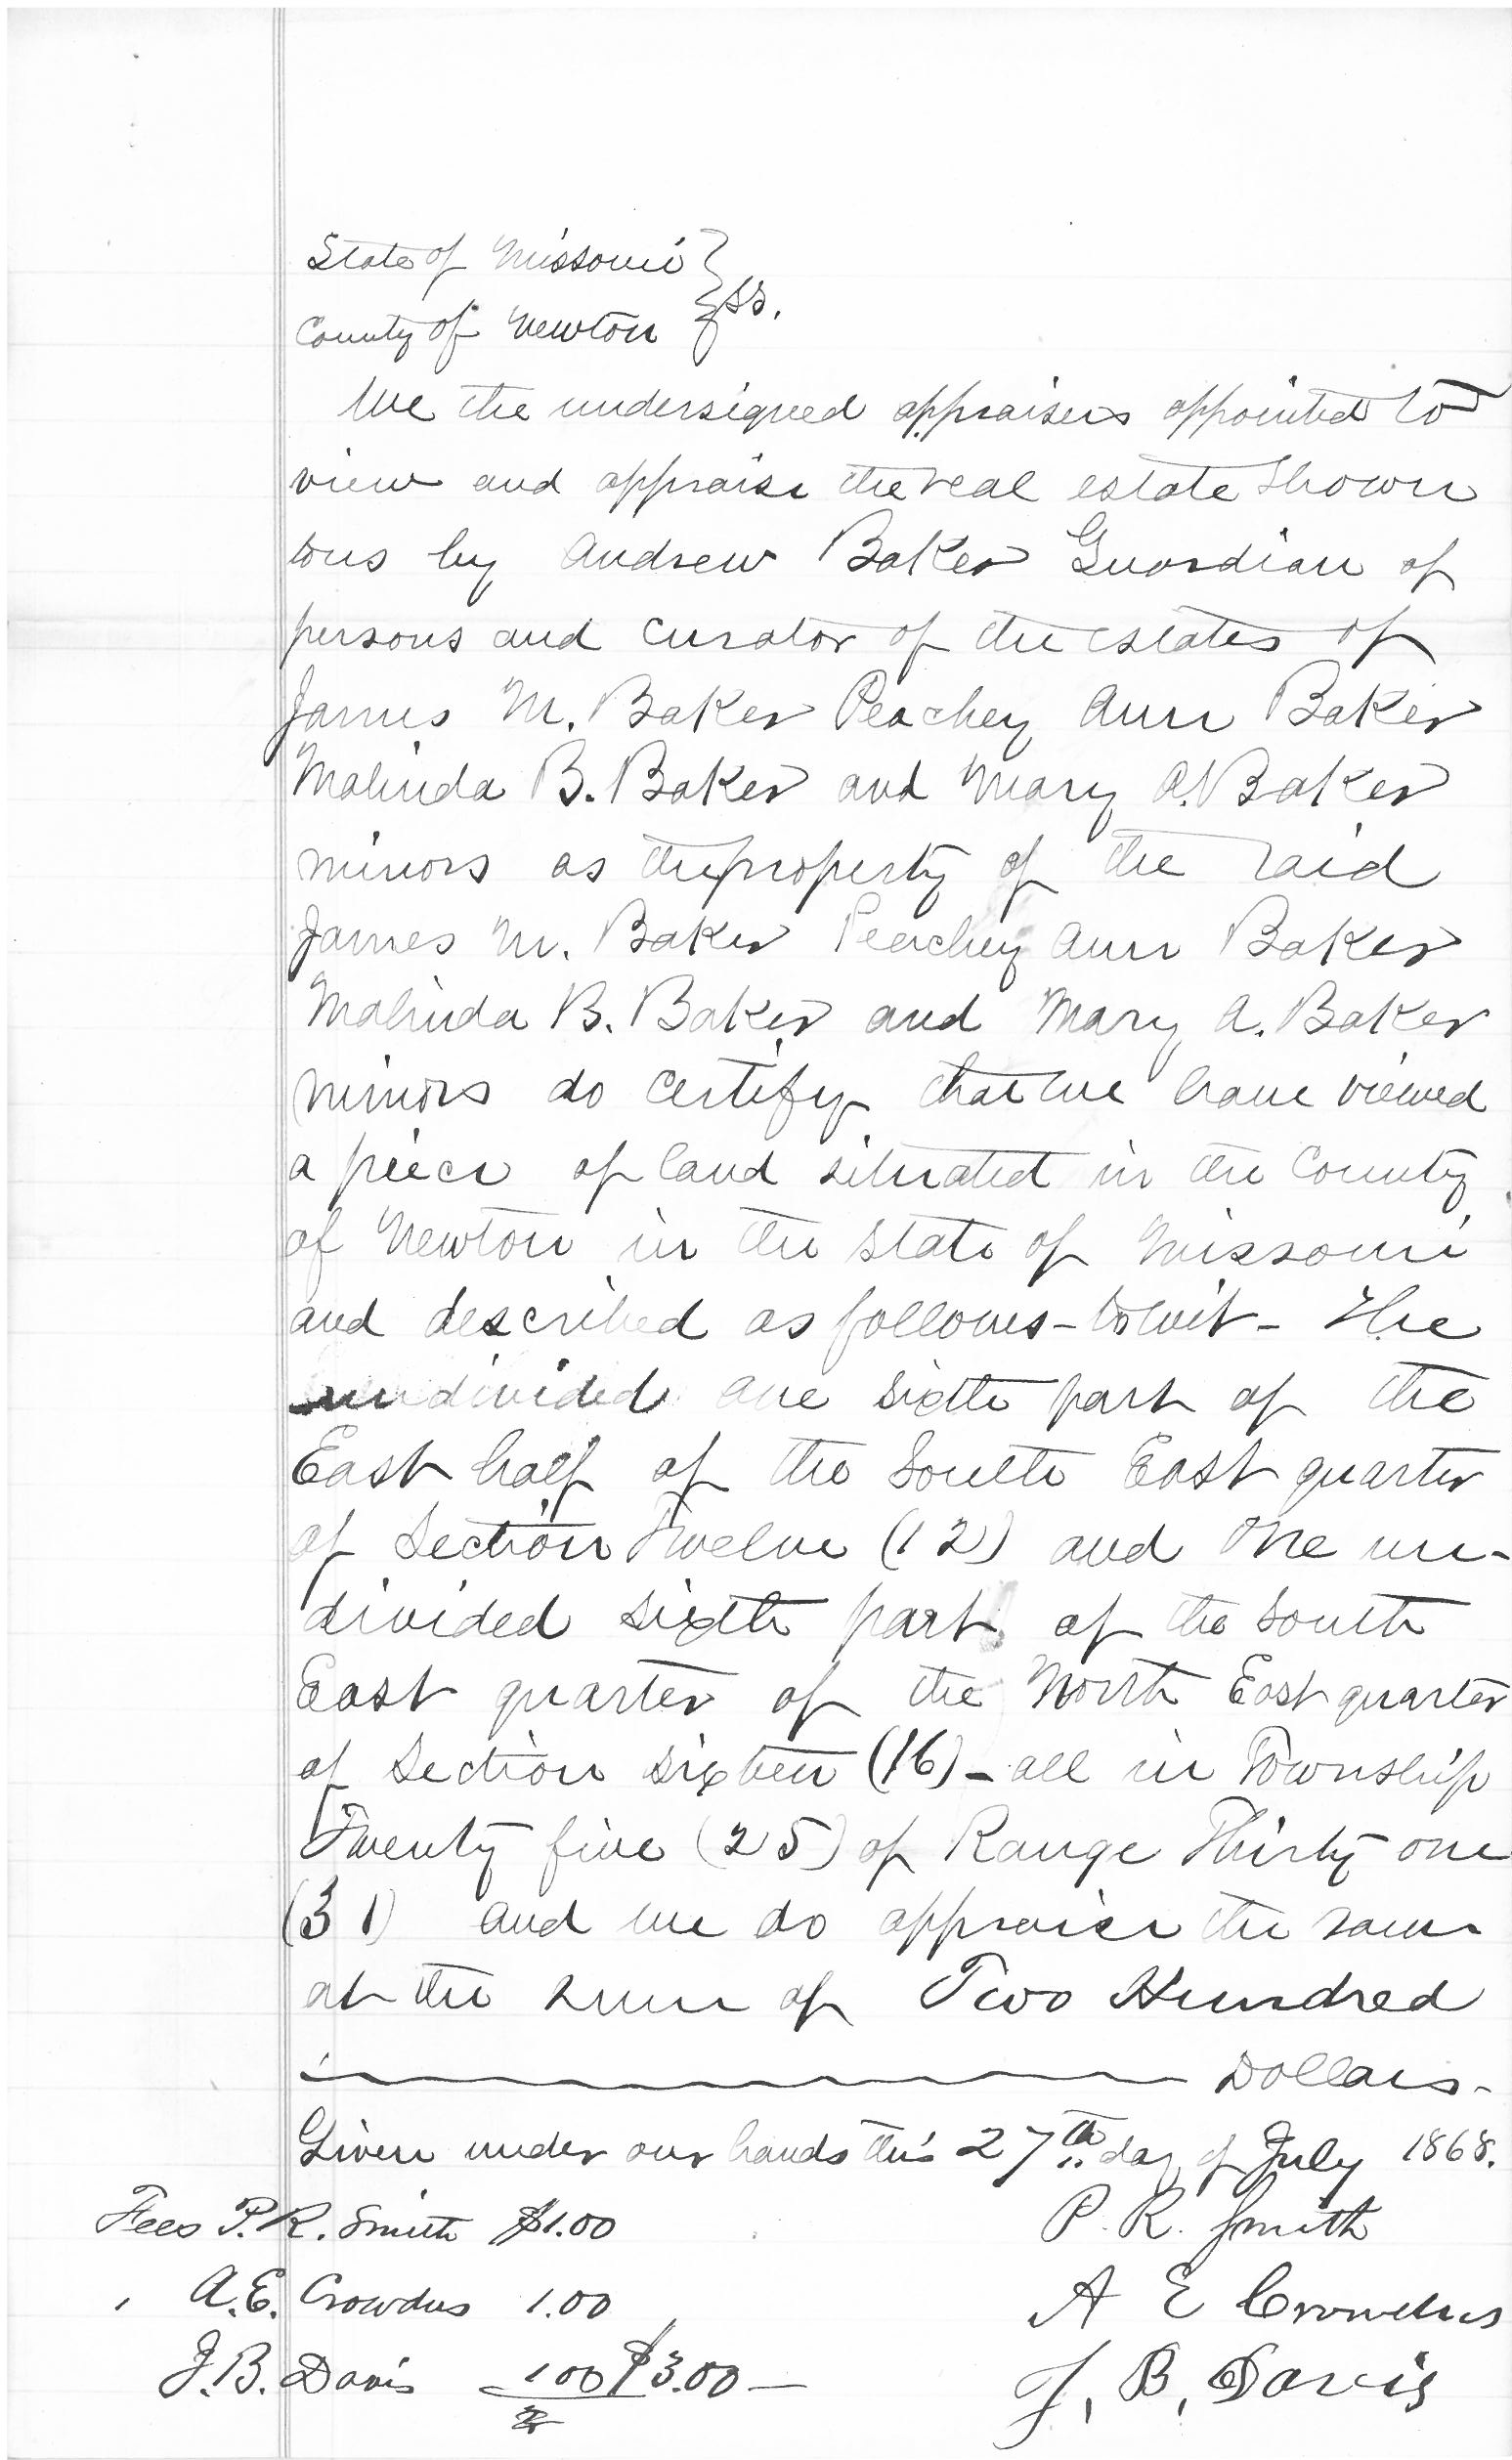 State of Missouri }
County of Newton } ss.
We the undersigned appraisers appointed to
view and appraise the real estate shown
to us by Andrew Baker Guardian of
persons and curator of the estates of
James M. Baker Peachey Ann Baker
Malinda B. Baker and Mary A. Baker
minors as the property of the said
James M. Baker Peachey Ann Baker
Malinda B. Baker and Mary A. Baker
minors do certify that we have viewed
a piece of land situated in the County
of Newton in the State of Missouri
and described as follows - towit - The
undivided one sixth part of the
East half of the South East quarter
of Section Twelve (12) and One un-
divided sixth part of the South
East quarter of the North East quarter
of Section Sixteen (16) - all in Township
Twenty five (25) of Range Thirty one
(31) and we do appraise the same
at the sum of Two Hundred
Dollars -
Given under our hands this 27th day of July 1868.
Fees P. R. Smith $1.00 P. R. Smith
A. E. Crowdus 1.00 A E Crowdus
J. B. Davis 1 00 $3.00 — J. B. Davis